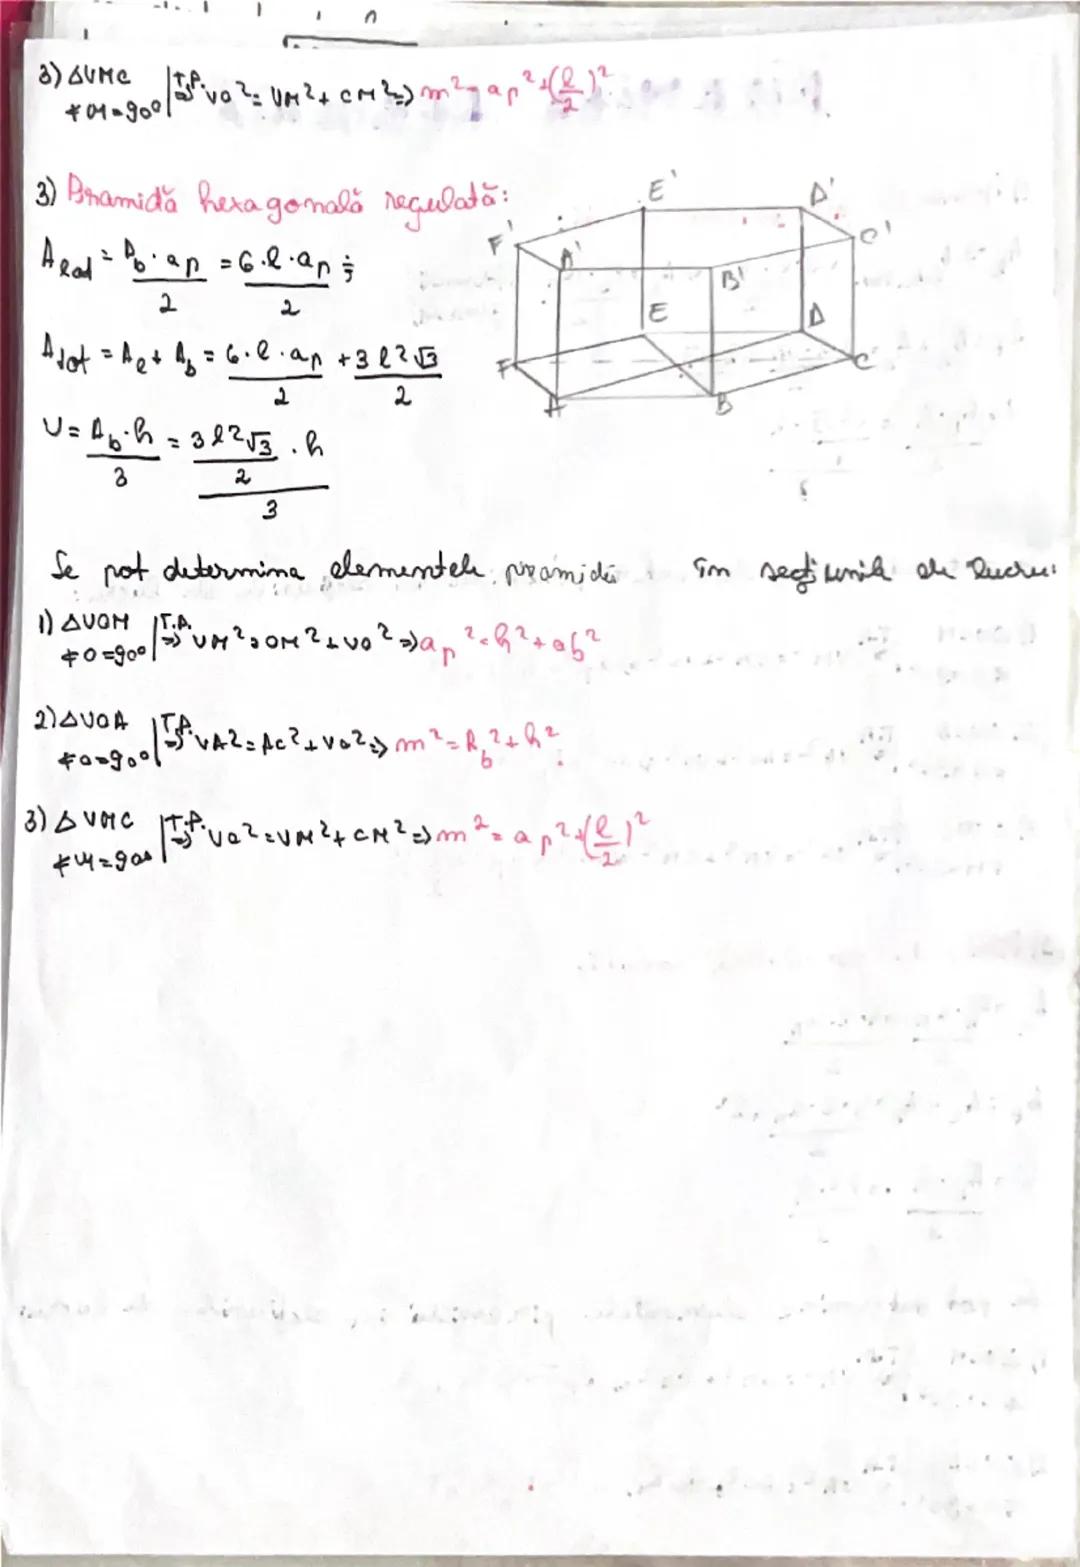 3) △VMC | T.P. ⇒ VC² = VM² + CM² ⇒ m² = ap² + (l/2)²
∢M = 90°
3) Piramidă hexagonală regulată:
A lad = Pb · ap / 2 = 6·l·ap / 2 ;
A tot = Al + Ab = 6·l·ap / 2 + 3l²√3 / 2
V = Ab·h / 3 = 3l²√3 / 2 · h / 3
E'
D'
F'
C'
A'
B'
E
D
F
C
A
B
Se pot determina elementele piramidei în secțiunile de lucru:
1) △VOM | T.P. ⇒ VM² = OM² + VO² ⇒ ap² = h² + ab²
∢O = 90°
2) △VOA | T.P. ⇒ VA² = AO² + VO² ⇒ m² = Rb² + h²
∢O = 90°
3) △VMC | T.P. ⇒ VC² = VM² + CM² ⇒ m² = ap² + (l/2)²
∢M = 90°